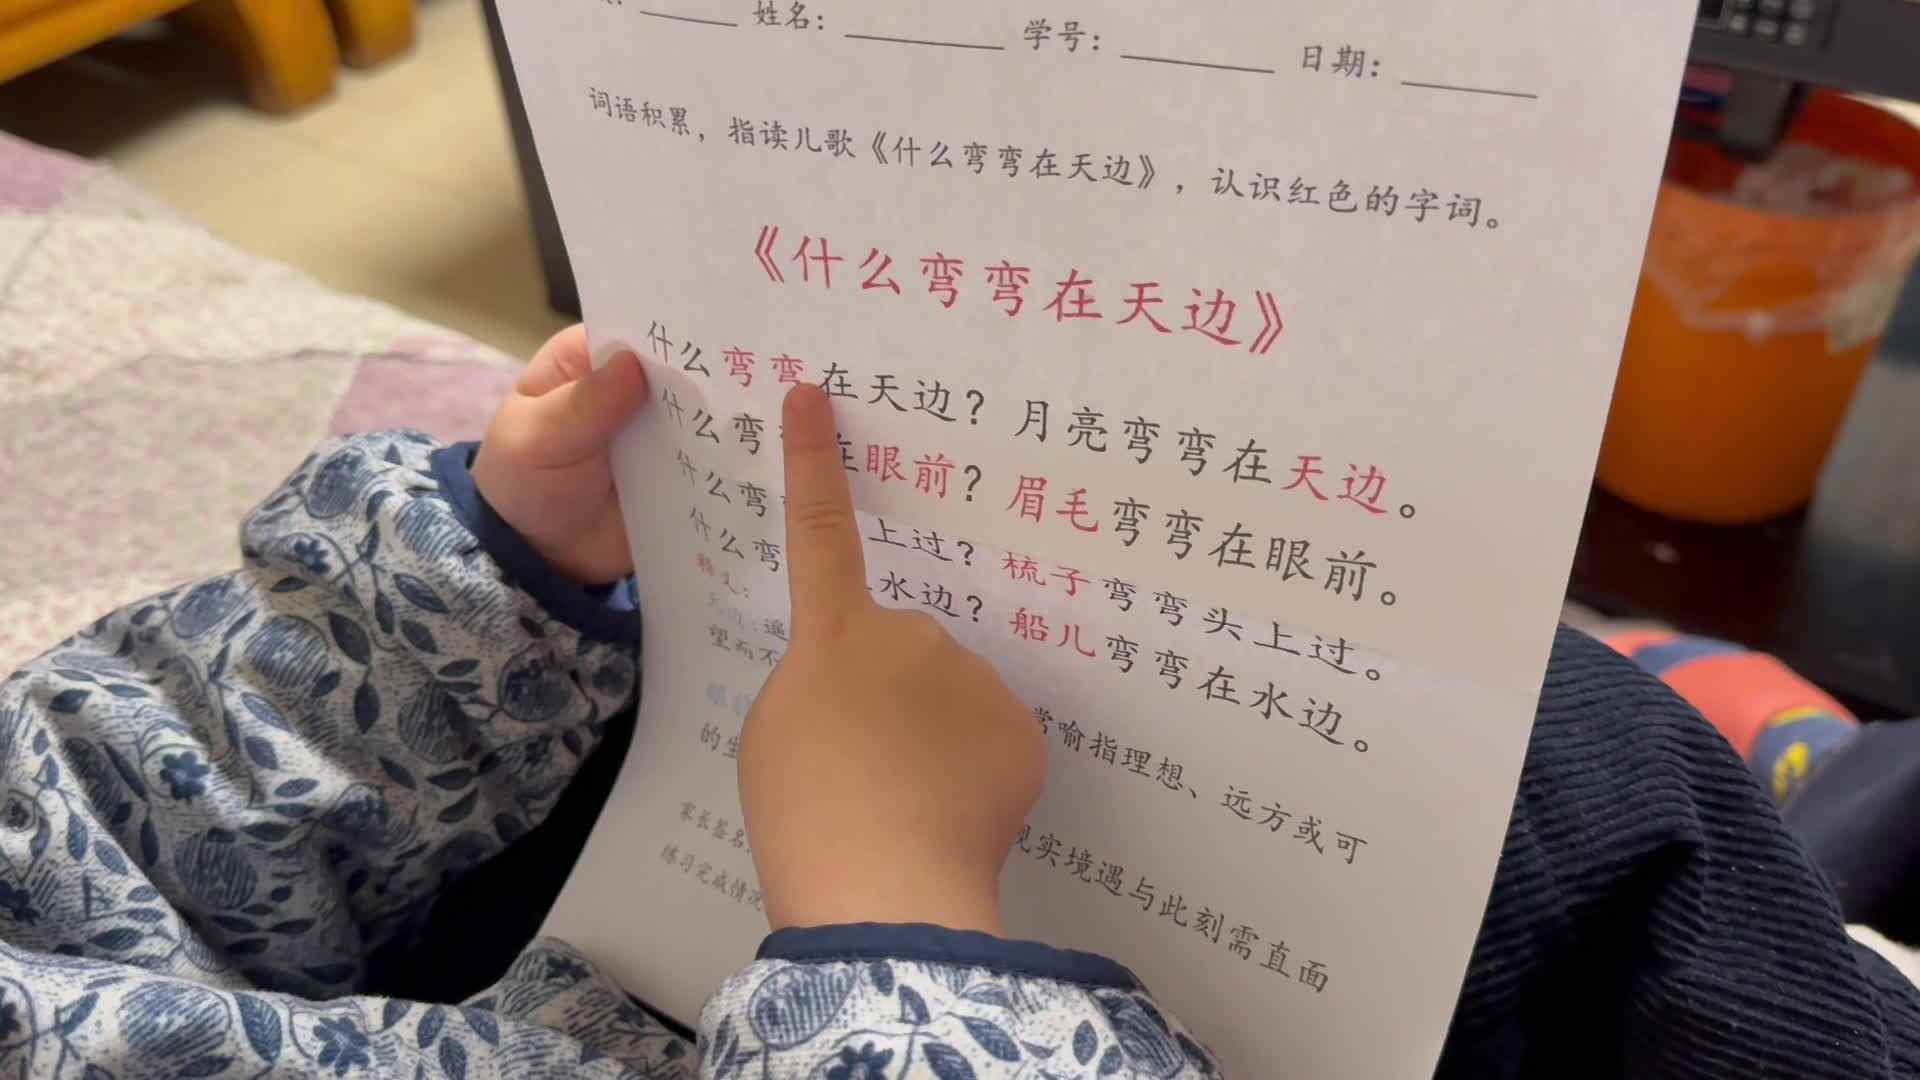 姓名： 学号： 日期：
词语积累，指读儿歌《什么弯弯在天边》，认识红色的字词。
《什么弯弯在天边》
什么弯弯在天边？月亮弯弯在天边。
什么弯 在眼前？眉毛弯弯在眼前。
什么弯 上过？梳子弯弯头上过。
什么弯 水边？船儿弯弯在水边。
释义：
遥 常喻指理想、远方或可
望而不
眼前 现实境遇与此刻需直面
的生
家长签名：
练习完成情况